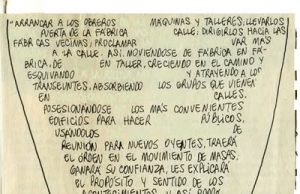 "ARRANCAR A LOS OBREROS MAQUINAS Y TALLERES; LLEVARLOS
PUERTA DE LA FÁBRICA CALLE; DIRIGIRLOS HACIA LAS
FABRICAS VECINAS; PROCLAMAR VAR MAS
A LA CALLE: ASI, MOVIENDOSE DE FABRICA EN FA-
BRICA, DE EN TALLER, CRECIENDO EN EL CAMINO Y
ESQUIVANDO Y ATRAYENDO A LOS
TRANSEUNTES, ABSORBIENDO LOS GRUPOS QUE VIENEN
EN CALLES.
POSESIONÁNDOSE LOS MAS CONVENIENTES
EDIFICIOS PARA HACER PÚBLICOS,
USANDOLOS DE
REUNIÓN PARA NUEVOS OYENTES, TRAERÁ
EL ORDEN EN EL MOVIMIENTO DE MASAS,
GANARÁ SU CONFIANZA, LES EXPLICARÁ
EL PROPÓSITO Y SENTIDO DE LOS